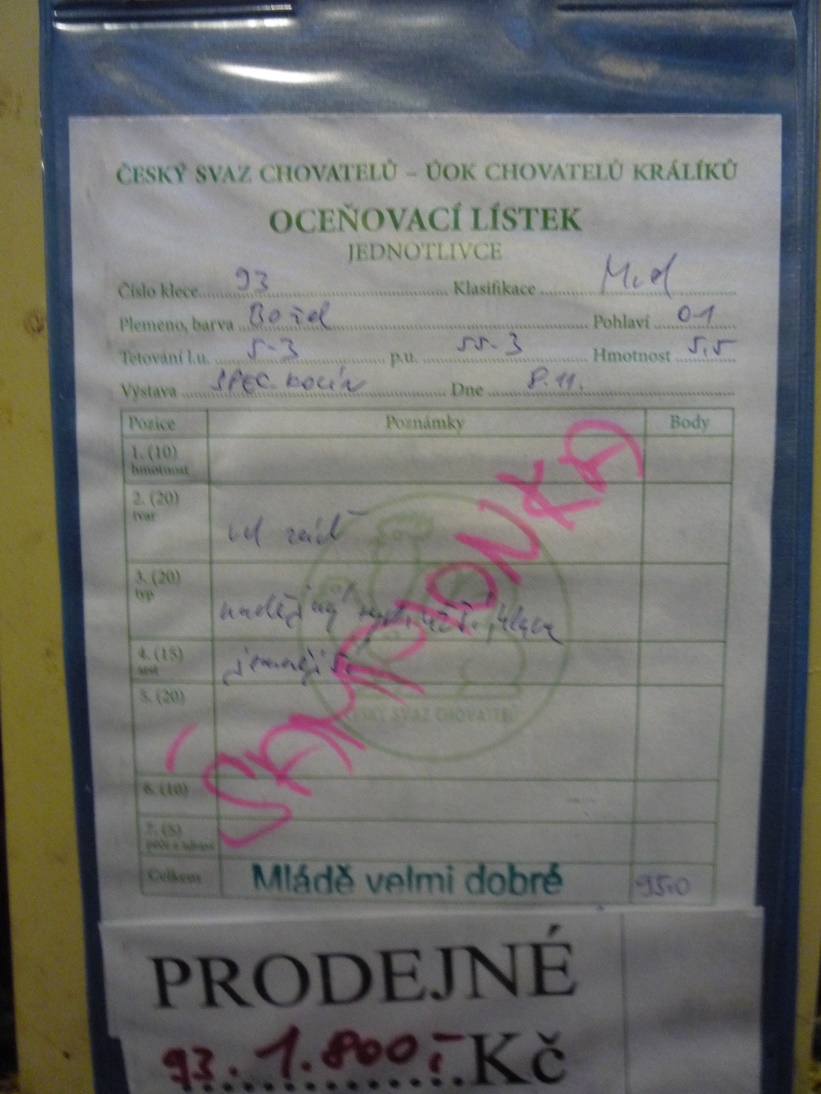 ČESKÝ SVAZ CHOVATELŮ – ÚOK CHOVATELŮ KRÁLÍKŮ
OCEŇOVACÍ LÍSTEK
JEDNOTLIVCE
Číslo klece 93 Klasifikace
Plemeno, barva Pohlaví 0-1
Tetování l.u. 5-3 p.u. 55-3 Hmotnost 5,5
Výstava SPEC. Dne 8.11.
Pozice Poznámky Body
1. (10)
hmotnost
2. (20)
tvar
3. (20)
typ
nadějný
4. (15)
srst
jemnější
5. (20)
6. (10)
7. (5)
péče a zdraví
ŠAMPIONKA
ČESKÝ SVAZ CHOVATELŮ
Celkem Mládě velmi dobré 95,0
PRODEJNÉ
93. 1.800,- Kč